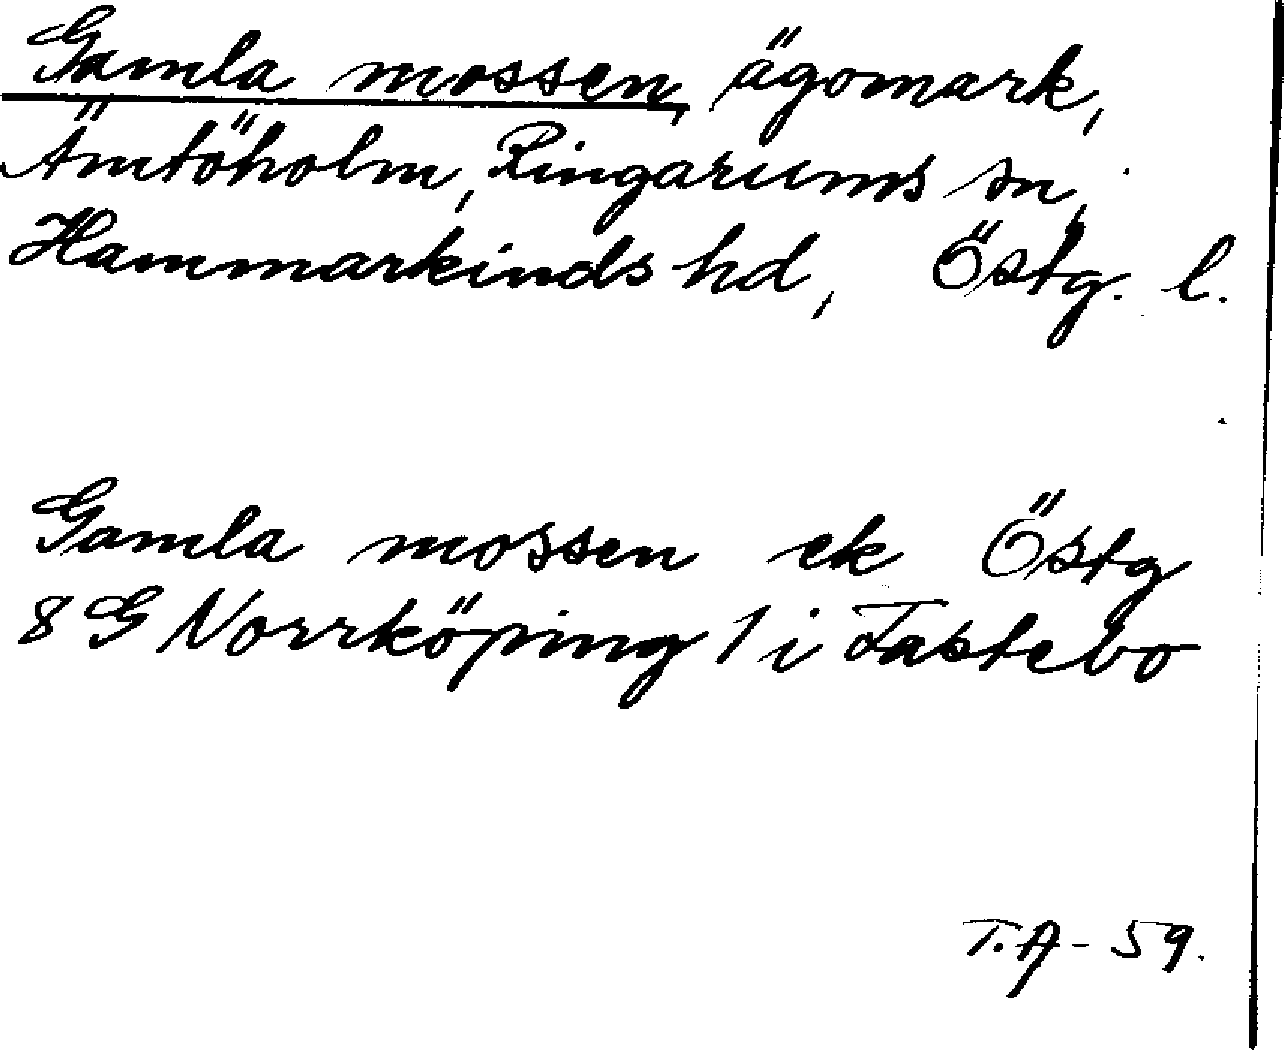 Gamla mossen, ägomark,
Ämtöholm, Ringarums sn,
Hammarkinds hd, Östg. l.
Gamla mossen ek Östg
8 G Norrköping 1 i Fastebo
T.A - 59.